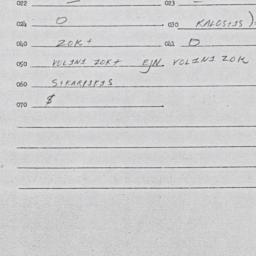 022 023
024 O 030 KALOS+IS)
040 ZOK+ 041 D
050 VOLINI ZOK+ EJN. VOLINI ZOK
060 S+KARPIRIS
070 $